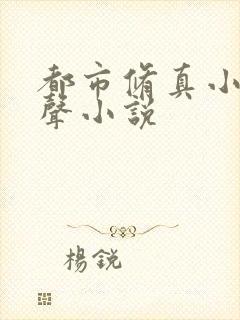 都市脩真小
聲小説
楊銳